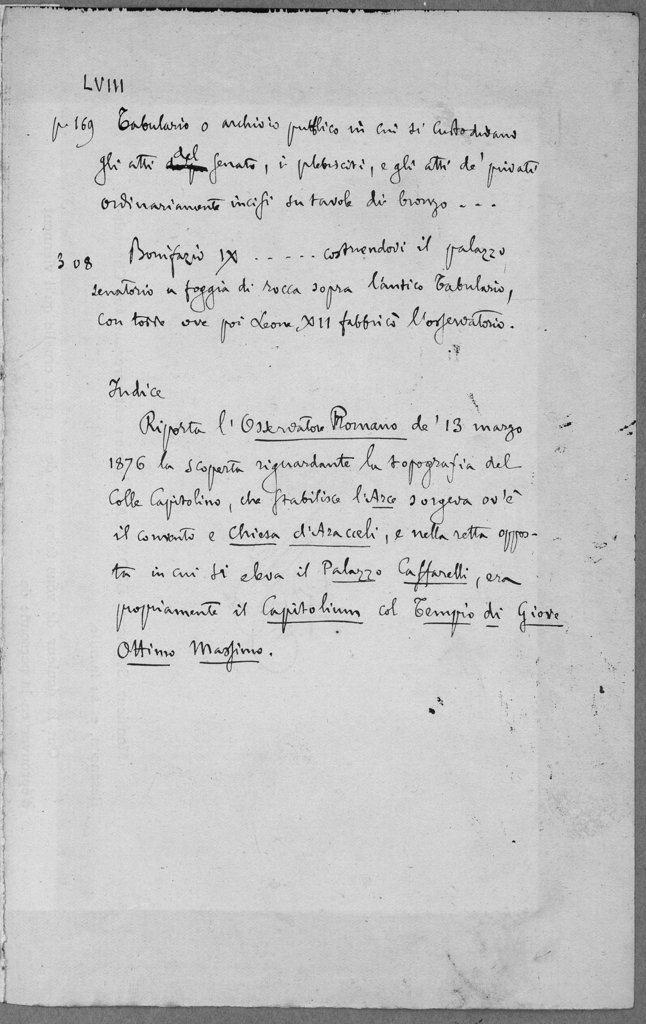 LVIII
p. 169 Tabulario o archivio pubblico in cui si custodivano
gli atti del Senato, i plebisciti, e gli atti de' privati
ordinariamente incisi su tavole di bronzo - - -
308 Bonifazio IX . . . . . costruendovi il palazzo
senatorio a foggia di rocca sopra l'antico Tabulario,
con torre ove poi Leone XII fabbricò l'osservatorio.
Indice
Riporta l'Osservatore Romano de' 13 marzo
1876 la scoperta riguardante la topografia del
Colle Capitolino, che stabilisce l'Arce sorgeva ov'è
il convento e Chiesa d'Aracœli, e nella retta oppos-
ta in cui si eleva il Palazzo Caffarelli, era
propriamente il Capitolium col Tempio di Giove
Ottimo Massimo.